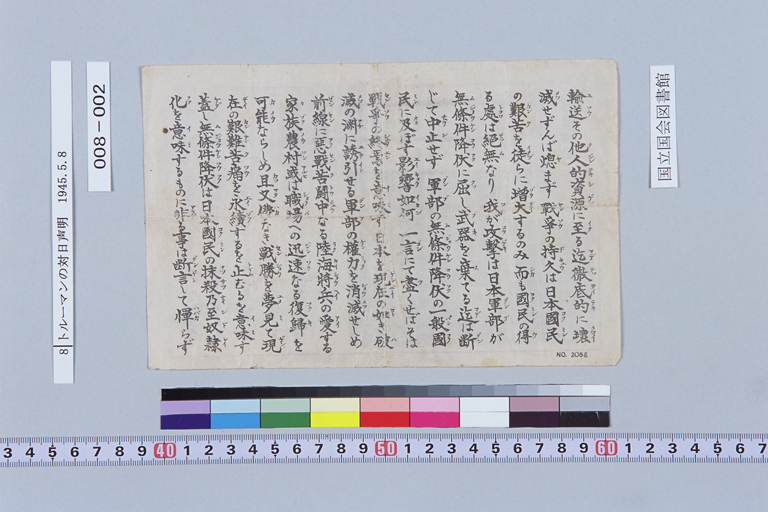 輸送その他人的資源に至る迄徹底的に壊
滅せずんば熄まず 戦爭の持久は日本國民
の艱苦を徒らに増大するのみ 而も國民の得
る處は絶無なり 我が攻撃は日本軍部が
無條件降伏に屈し武器を棄てる迄は断
じて中止せず 軍部の無條件降伏の一般國
民に及ぼす影響如何 一言にて盡くせばそは
戦爭の終焉を意味す 日本を現在の如き破
滅の淵に誘引せる軍部の權力を消滅せしめ
前線に惡戦苦闘中なる陸海將兵の愛する
家族農村或は職場への迅速なる復歸を
可能ならしめ且又儚なき戦勝を夢見て現
在の艱難苦痛を永續するを止むるを意味す
蓋し無條件降伏は日本國民の抹殺乃至奴隷
化を意味するものに非る事は断言して憚らず
NO. 2088
国立国会図書館
008-002
8 トルーマンの対日声明 1945.5.8
3 4 5 6 7 8 9 40 1 2 3 4 5 6 7 8 9 50 1 2 3 4 5 6 7 8 9 60 1 2 3 4 5 6 7